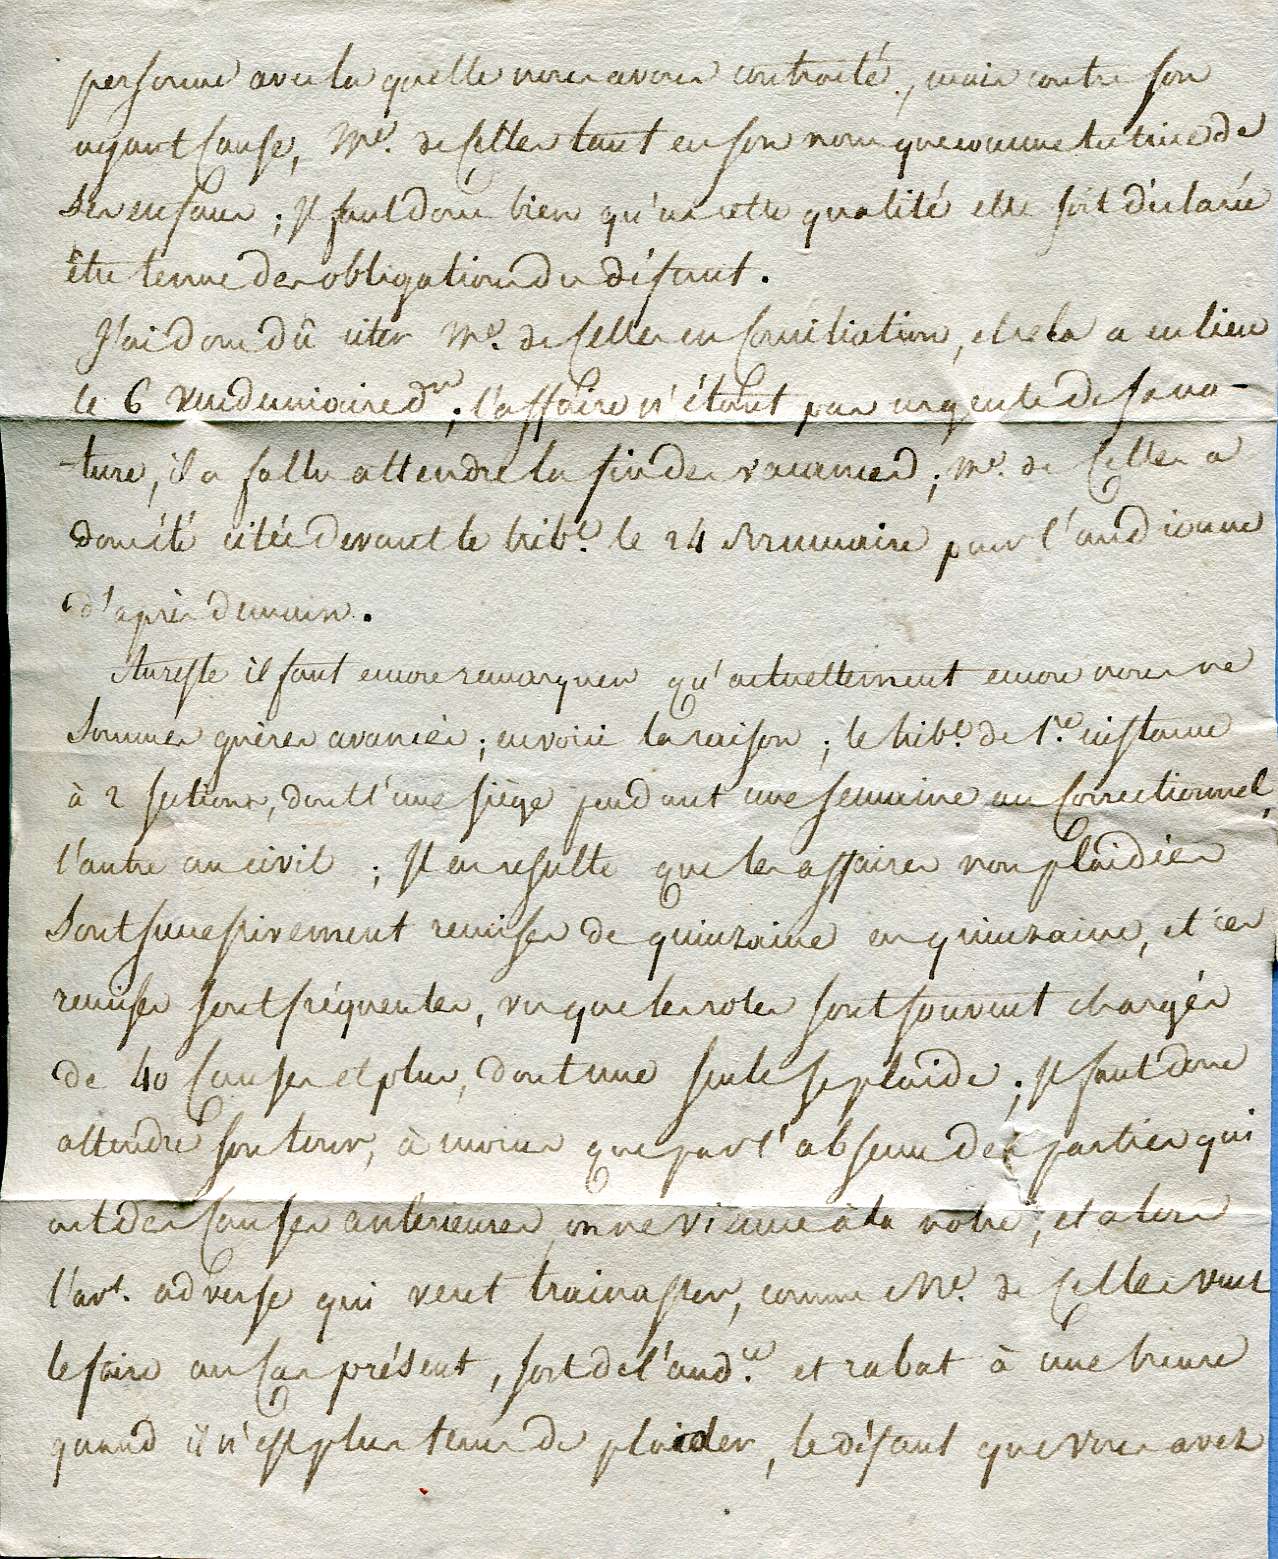 personne avec la quelle nous avons contracté, mais contre son
ayant cause, Me. de Celles tant en son nom que comme tutrice de
ses enfans ; Il faut donc bien qu'en cette qualité elle soit déclarée
être tenue des obligations du défunt.
J'ai donc dû citer Me. de Celles en Conciliation, et cela a eu lieu
le 6 Vendemiaire dr ; l'affaire n'étant pas urgente de sa na-
-ture, il a fallu attendre la fin des vacances ; Me. de Celles a
donc été citée devant le tribl. le 24 Brumaire pour l'audience
d'après demain.
Au reste il faut encore remarquer qu'actuellement encore nous ne
sommes guères avancés ; en voici la raison ; le tribl. de 1re. instance
à 2 sections, dont l'une siège pendant une semaine au Correctionnel,
l'autre au civil ; Il en resulte que les affaires non plaidées
sont successivement remises de quinzaine en quinzaine, et ces
remises sont fréquentes, vu que les roles sont souvent chargés
de 40 Causes et plus, dont une seule se plaide ; Il faut donc
attendre son tour, à moins que par l'absence des parties qui
ont des Causes anterieures on ne vienne à la notre, et alors
l'avt. adverse qui veut trainasser, comme Me. de Celles veut
le faire au Cas présent, sort de l'audce. et rabat à une heure
quand il n'est plus tems de plaider, le défaut que vous avez